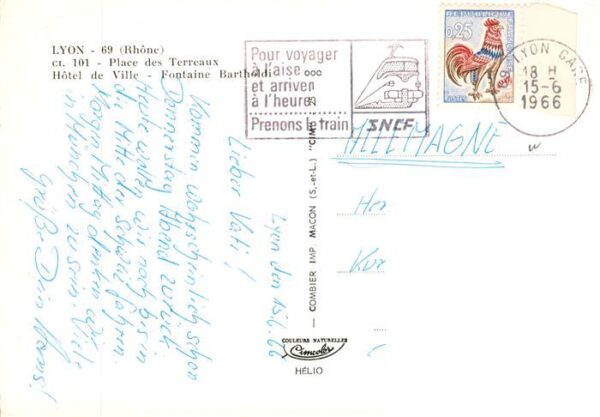 LYON - 69 (Rhône)
CI. 101 - Place des Terreaux
Hôtel de Ville - Fontaine Bartholdi
Pour voyager
à l'aise...
et arriver
à l'heure
Prenons le train
SNCF
0,25
LYON GARE
18 H
15-6
1966
ALLEMAGNE
Her
Kur
"CIM"
COMBIER IMP. MACON (S.-et-L.)
COULEURS NATURELLES
Cimcolor
HÉLIO
Lyon den 15.6.66
Lieber Vati!
Kommen wahrscheinlich schon
Donnerstag Abend zurück
Heute wollen wir noch bis in
die Mitte der Schweiz fahren.
Morgen Mittag denken wir
in München zu sein. Viele
Grüße Dein